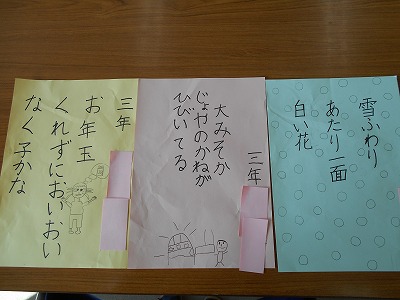 雪ふわり
あたり一面
白い花
大みそか
じょやのかねが
ひびいてる
三年
三年
お年玉
くれずにおいおい
なく子かな